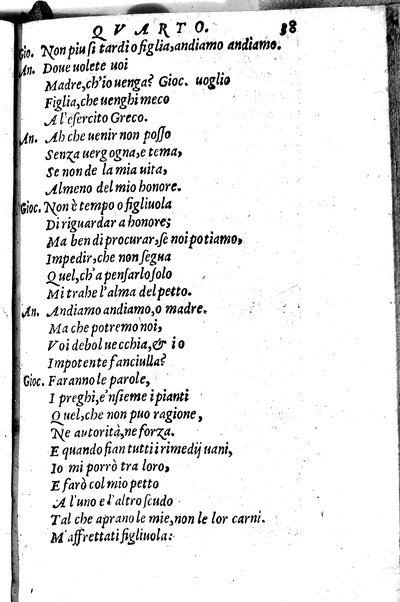 QVARTO. 38
Gio. Non piu si tardi o figlia, andiamo andiamo.
An. Doue uolete uoi
Madre, ch'io uenga? Gioc. uoglio
Figlia, che uenghi meco
A l'esercito Greco.
An. Ah che uenir non posso
Senza uergogna, e tema,
Se non de la mia uita,
Almeno del mio honore.
Gioc. Non è tempo o figliuola
Di riguardar a honore;
Ma ben di procurar, se noi potiamo,
Impedir, che non segua
Quel, ch'a pensarlo solo
Mi trahe l'alma del petto.
An. Andiamo andiamo, o madre.
Ma che potremo noi,
Voi debol uecchia, & io
Impotente fanciulla?
Gioc. Faranno le parole,
I preghi, e'nsieme i pianti
Quel, che non puo ragione,
Ne autorità, ne forza.
E quando sian tutti i rimedij uani,
Io mi porrò tra loro,
E farò col mio petto
A l'uno e l'altro scudo
Tal che aprano le mie, non le lor carni.
M'affrettati figliuola: